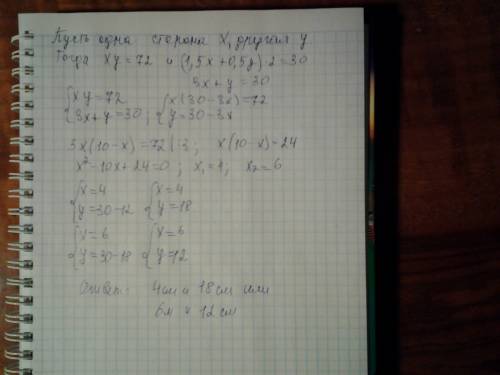 Пусть одна сторона x, другая y.
Тогда xy=72 и (1,5x+0,5y)·2=30
3x+y=30
{xy=72 {x(30-3x)=72
{3x+y=30; {y=30-3x
3x(10-x)=72|:3; x(10-x)=24
x²-10x+24=0; x₁=4; x₂=6
{x=4 {x=4
{y=30-12 {y=18
{x=6 {x=6
{y=30-18 {y=12
Ответ: 4см и 18см или
6м и 12см